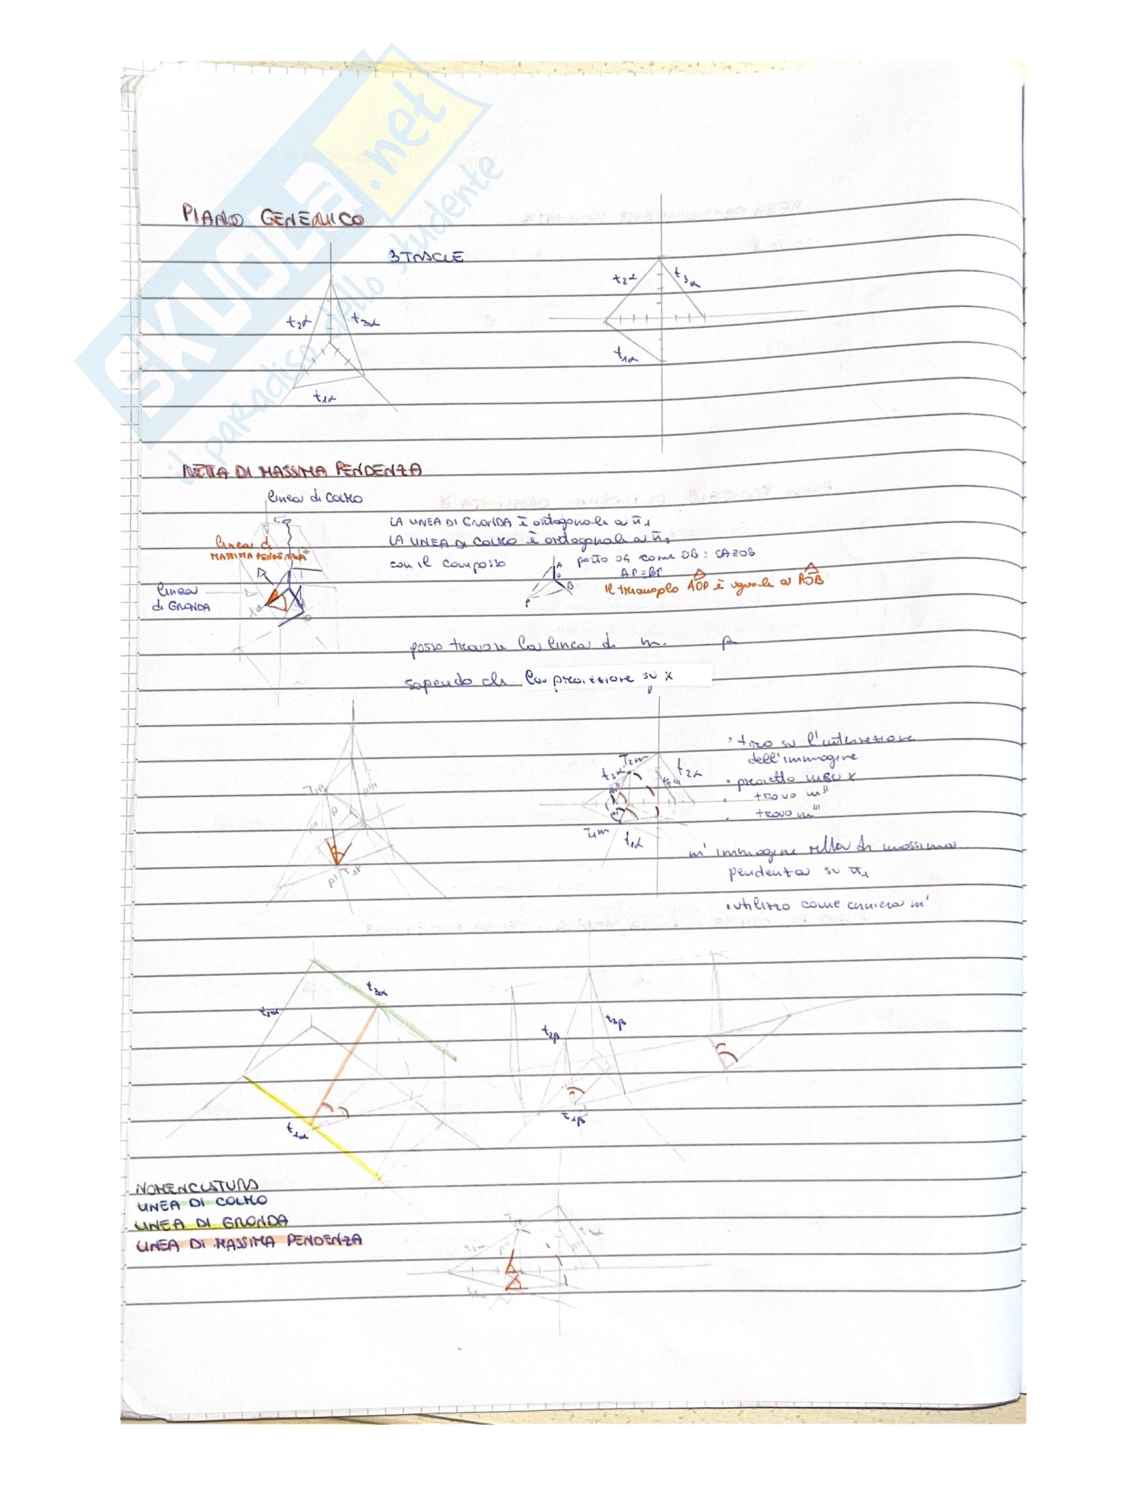 SKUOLA.net
il paradiso dello studente
PIANO GENERICO
3 TRACCE
t₂α
t₃α
t₁α
t₂α
t₃α
t₁α
RETTA DI MASSIMA PENDENZA
linea di COLMO
linea di
MASSIMA PENDENZA
linea
di GRONDA
LA LINEA DI GRONDA è ortogonale a π₁
LA LINEA DI COLMO è ortogonale a π₁
con il compasso
A
B
P
porto OA come OB : OA≅OB
AP=BP
il triangolo AOP è uguale a AOB
posso trovare la linea di m. p
sapendo che la proiezione su x
T₂m
t₃α
t₂α
T₁m
t₁α
• tiro su l'intersezione
dell'immagine
• proietto m su x
• trovo m"
• trovo m'''
m' immagine retta di massima
pendenza su π₁
• utilizzo come cerniera m'
t₂α
t₃α
t₁α
t₂β
t₃β
t₁β
NOMENCLATURA
LINEA DI COLMO
LINEA DI GRONDA
LINEA DI MASSIMA PENDENZA